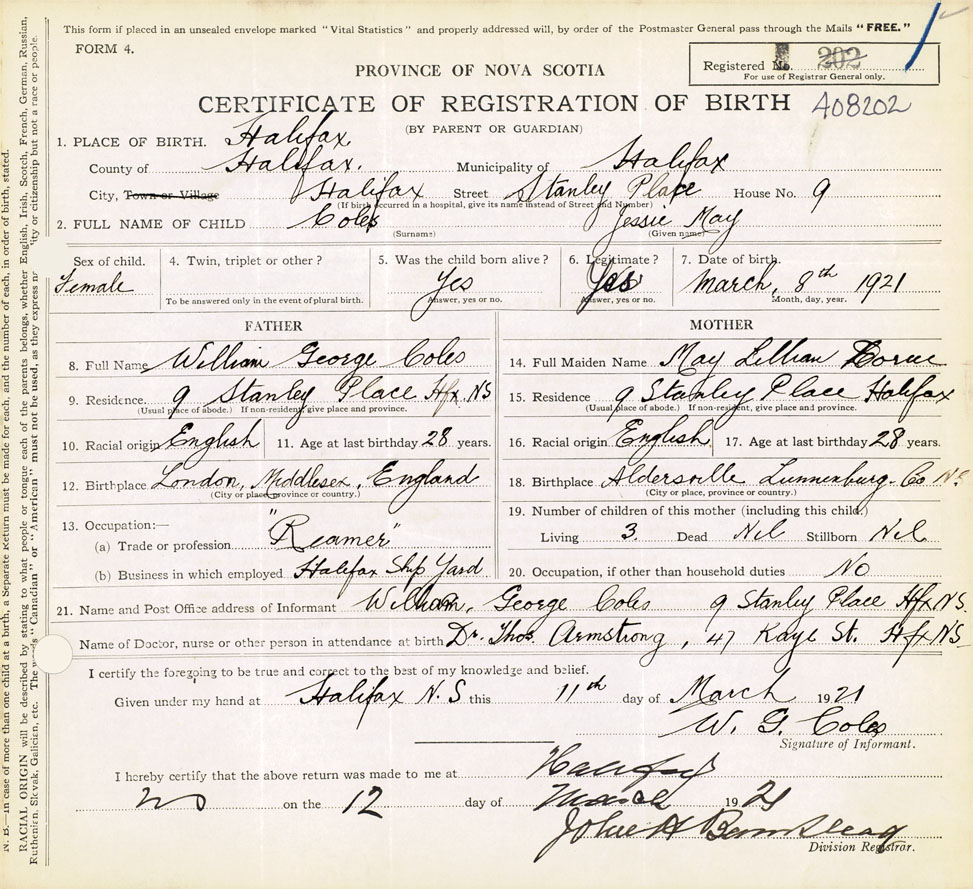 This form if placed in an unsealed envelope marked "Vital Statistics" and properly addressed will, by order of the Postmaster General pass through the Mails "FREE."
FORM 4.
Registered No. 202
For use of Registrar General only.
PROVINCE OF NOVA SCOTIA
CERTIFICATE OF REGISTRATION OF BIRTH A08202
(BY PARENT OR GUARDIAN)
1. PLACE OF BIRTH. Halifax
County of Halifax. Municipality of Halifax
City, Town or Village Halifax Street Stanley Place House No. 9
(If birth occurred in a hospital, give its name instead of Street and Number)
2. FULL NAME OF CHILD Coles Jessie May
(Surname) (Given name)
Sex of child. Female
4. Twin, triplet or other?
To be answered only in the event of plural birth.
5. Was the child born alive? Yes
Answer, yes or no.
6. Legitimate? Yes
Answer, yes or no.
7. Date of birth. March, 8th 1921
Month, day, year.
FATHER
8. Full Name William George Coles
9. Residence. 9 Stanley Place Hfx NS
(Usual place of abode.) If non-resident, give place and province.
10. Racial origin English 11. Age at last birthday 28 years.
12. Birthplace London, Middlesex, England
(City or place, province or country.)
13. Occupation:—
(a) Trade or profession "Reamer"
(b) Business in which employed Halifax Ship Yard
MOTHER
14. Full Maiden Name May Lillian
15. Residence 9 Stanley Place Halifax
(Usual place of abode.) If non-resident, give place and province.
16. Racial origin English 17. Age at last birthday 28 years.
18. Birthplace Aldersville Lunnenburg Co NS
(City or place, province, or country.)
19. Number of children of this mother (including this child.)
Living 3. Dead Nil Stillborn Nil
20. Occupation, if other than household duties No
21. Name and Post Office address of Informant William, George Coles 9 Stanley Place Hfx NS.
Name of Doctor, nurse or other person in attendance at birth Dr. Thos. Armstrong, 47 Kaye St. Hfx NS
I certify the foregoing to be true and correct to the best of my knowledge and belief.
Given under my hand at Halifax N.S this 11th day of March 1921
W. G. Coles
Signature of Informant.
I hereby certify that the above return was made to me at Halifax
on the 12 day of March 1921
John A
Division Registrar.
N. B.—In case of more than one child at a birth, a Separate Return must be made for each, and the number of each, in order of birth, stated.
RACIAL ORIGIN will be described by stating to what people or tongue each of the parents belongs, whether English, Irish, Scotch, French, German, Russian,
Ruthenian, Slovak, Galician, etc. The "Canadian" or "American" must not be used, as they express citizenship but not a race or people.